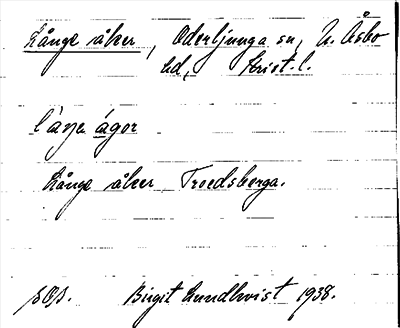 Långe åker, Oderljunga sn, N. Åsbo
hd, Krist. l.
åger
Långe åker, Troedsberga.
Birgit Lundkvist 1938.